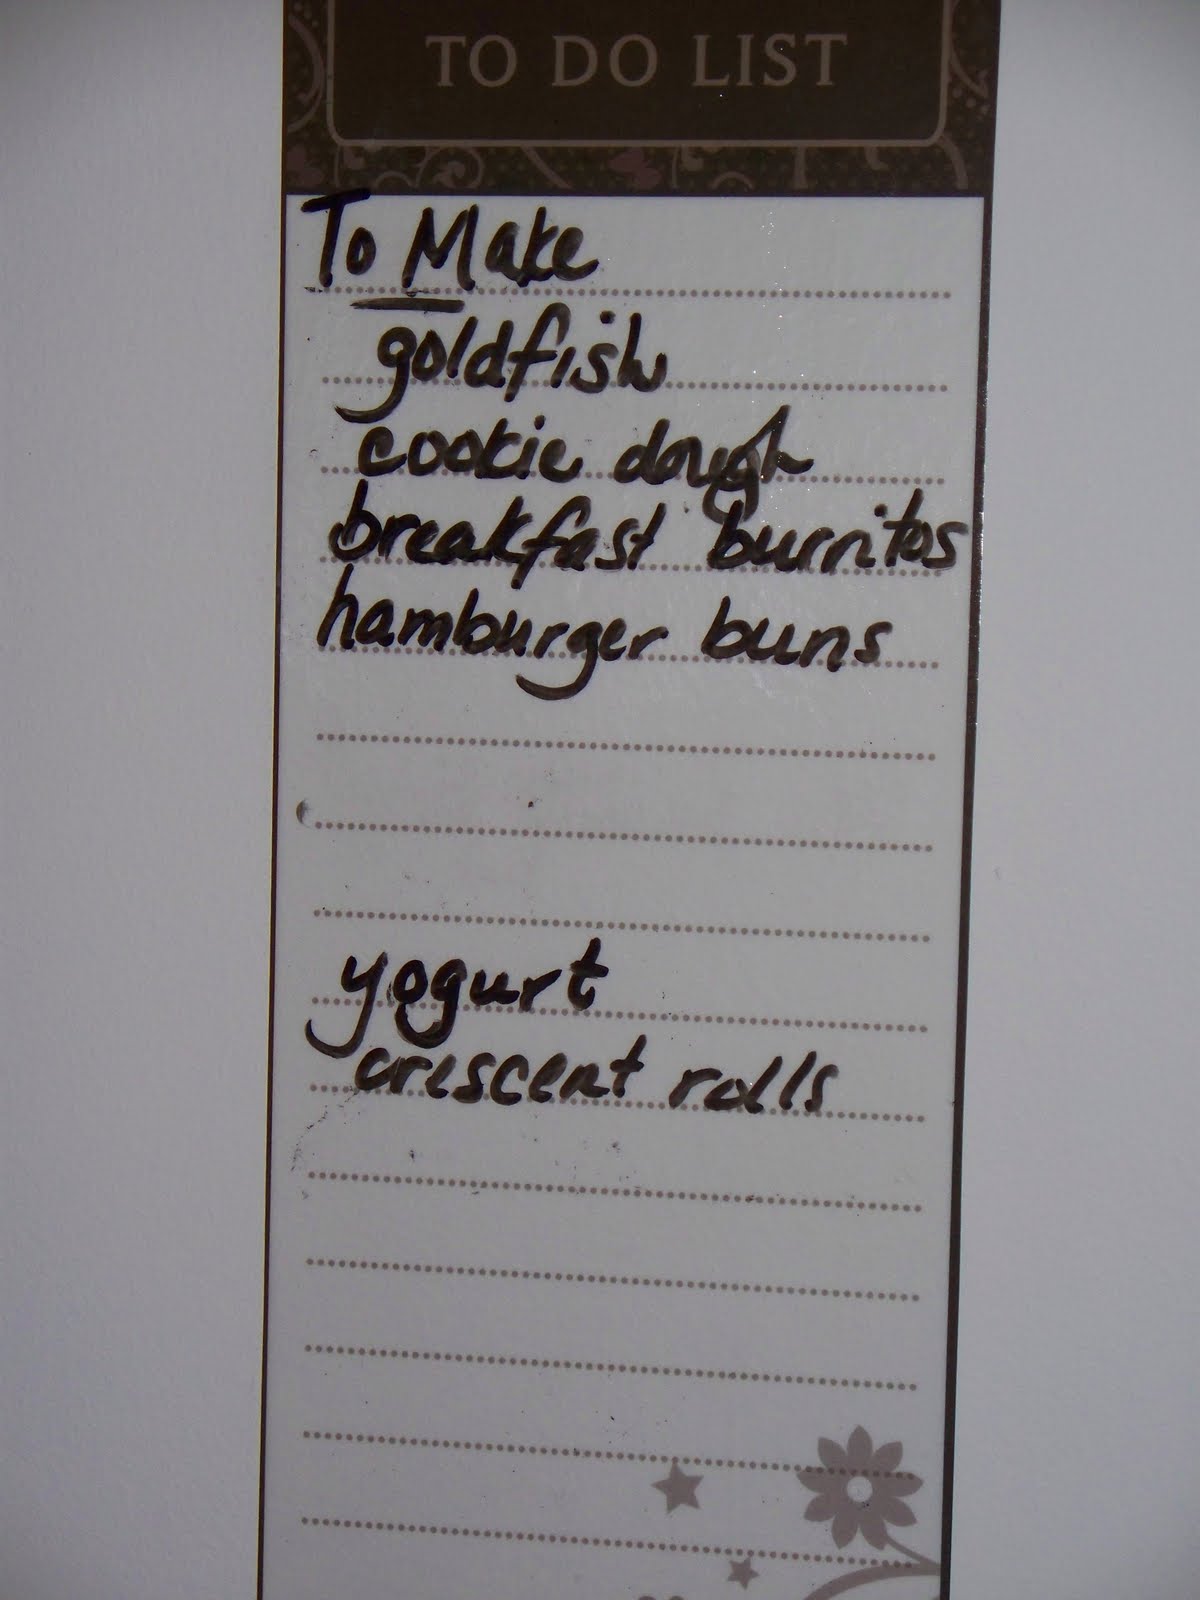 TO DO LIST
To Make
goldfish
cookie dough
breakfast burritos
hamburger buns
yogurt
crescent rolls